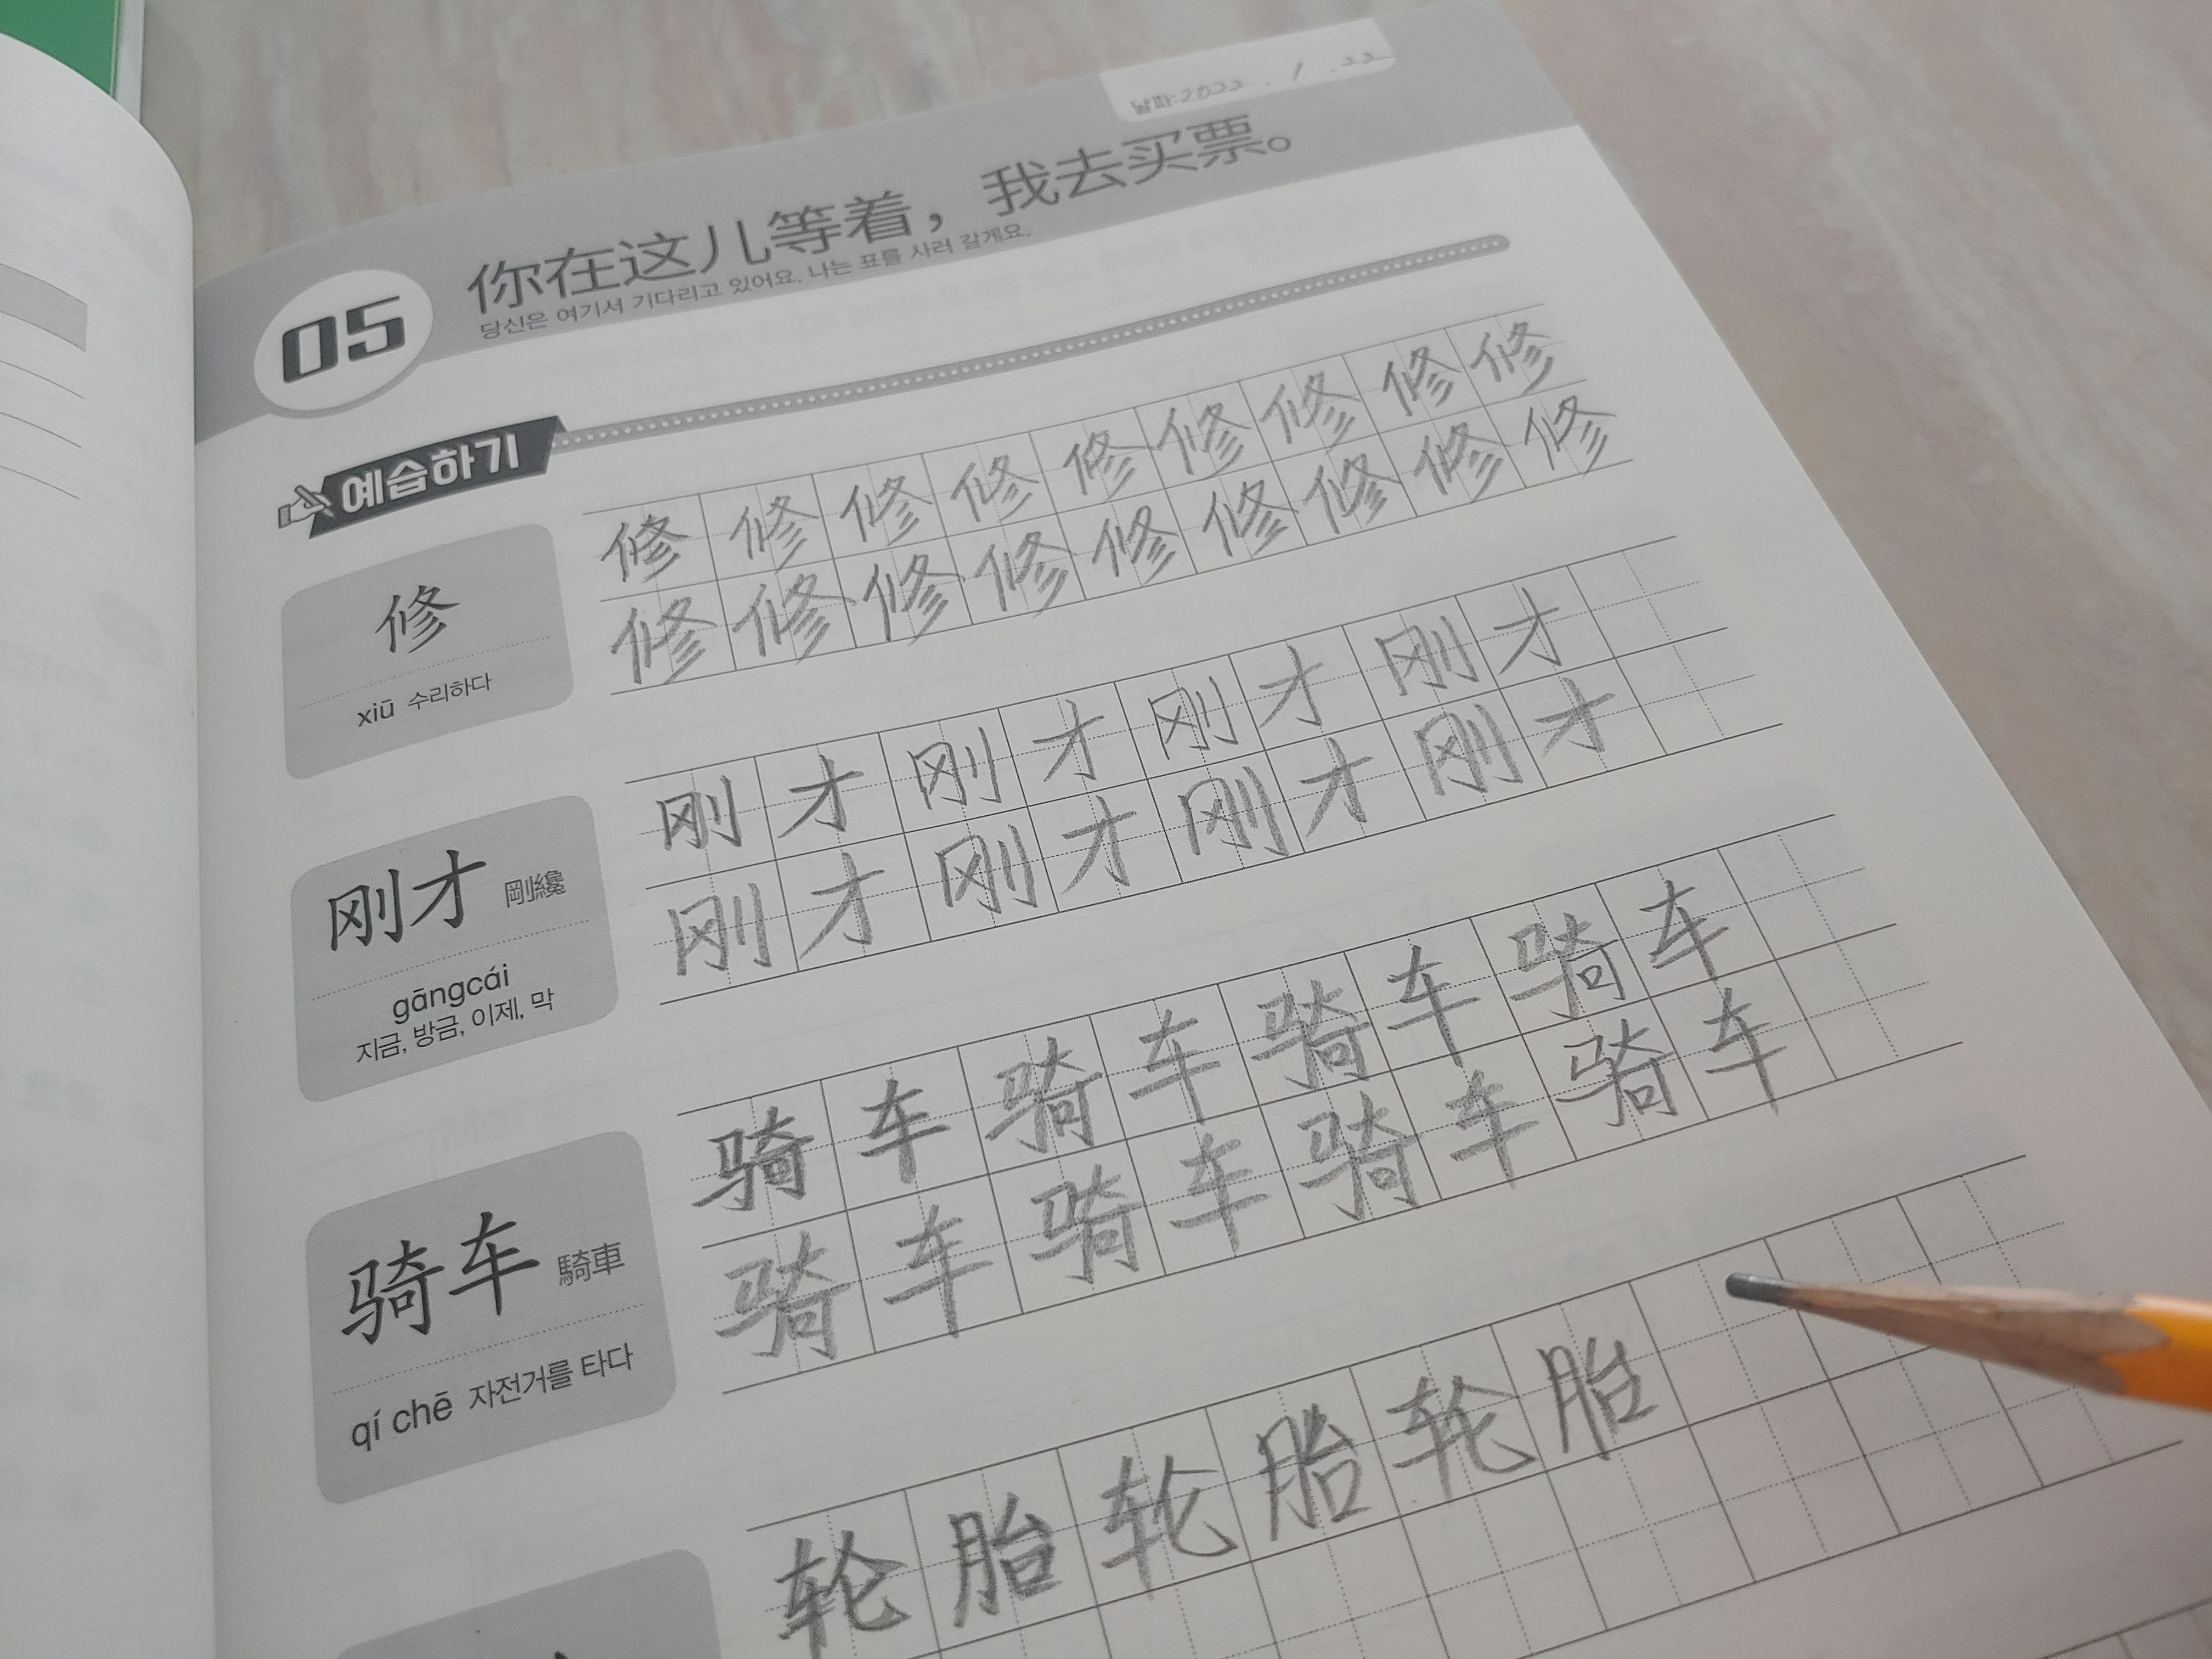 날짜:2022 . 1 . 22
05
你在这儿等着，我去买票。
당신은 여기서 기다리고 있어요. 나는 표를 사러 갈게요.
예습하기
修
xiū 수리하다
修 修 修 修 修 修 修 修 修
修 修 修 修 修 修 修 修 修
刚才 剛纔
gāngcái
지금, 방금, 이제, 막
刚 才 刚 才 刚 才 刚 才
刚 才 刚 才 刚 才 刚 才
骑车 騎車
qí chē 자전거를 타다
骑 车 骑 车 骑 车 骑 车
骑 车 骑 车 骑 车 骑 车
轮 胎 轮 胎 轮 胎